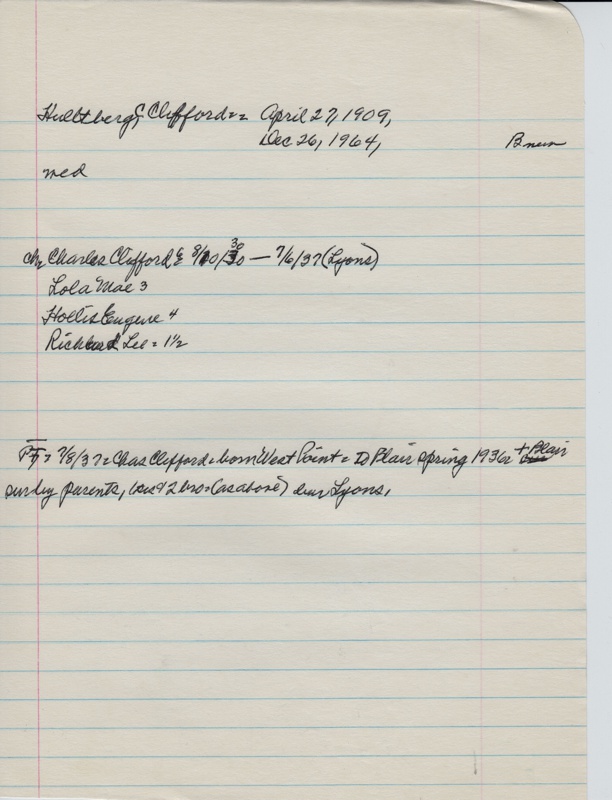 Hultberg, Clifford == April 27, 1909,
Dec 26, 1964,
med
ch= Charles Clifford 8/10/30 — 7/6/37 (Lyons)
Lola Mae 3
Hollis Eugene 4
Richard Lee = 1½
PT= 7/8/37 = Chas Clifford = born West Point = To Blair spring 1936 + Blair
surv by parents, 1 sis & 2 bro = (as above) bur Lyons,